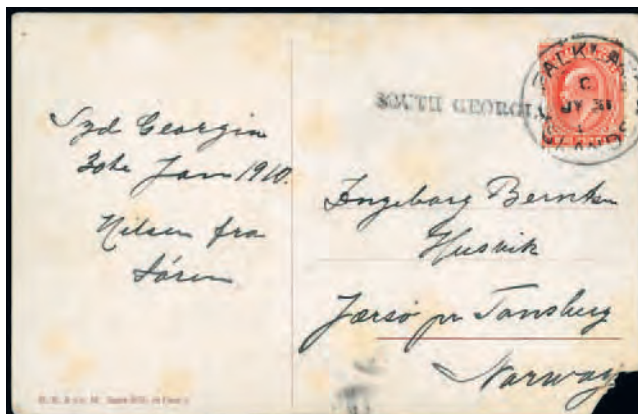 Syd Georgia
30te Jan 1910.
Hilsen fra
Sören
SOUTH GEORGIA.
FALKLAND
C
JY 31
ISLANDS
Ingeborg Berntsen
Husvik
Jærsø pr Tønsberg
Norway